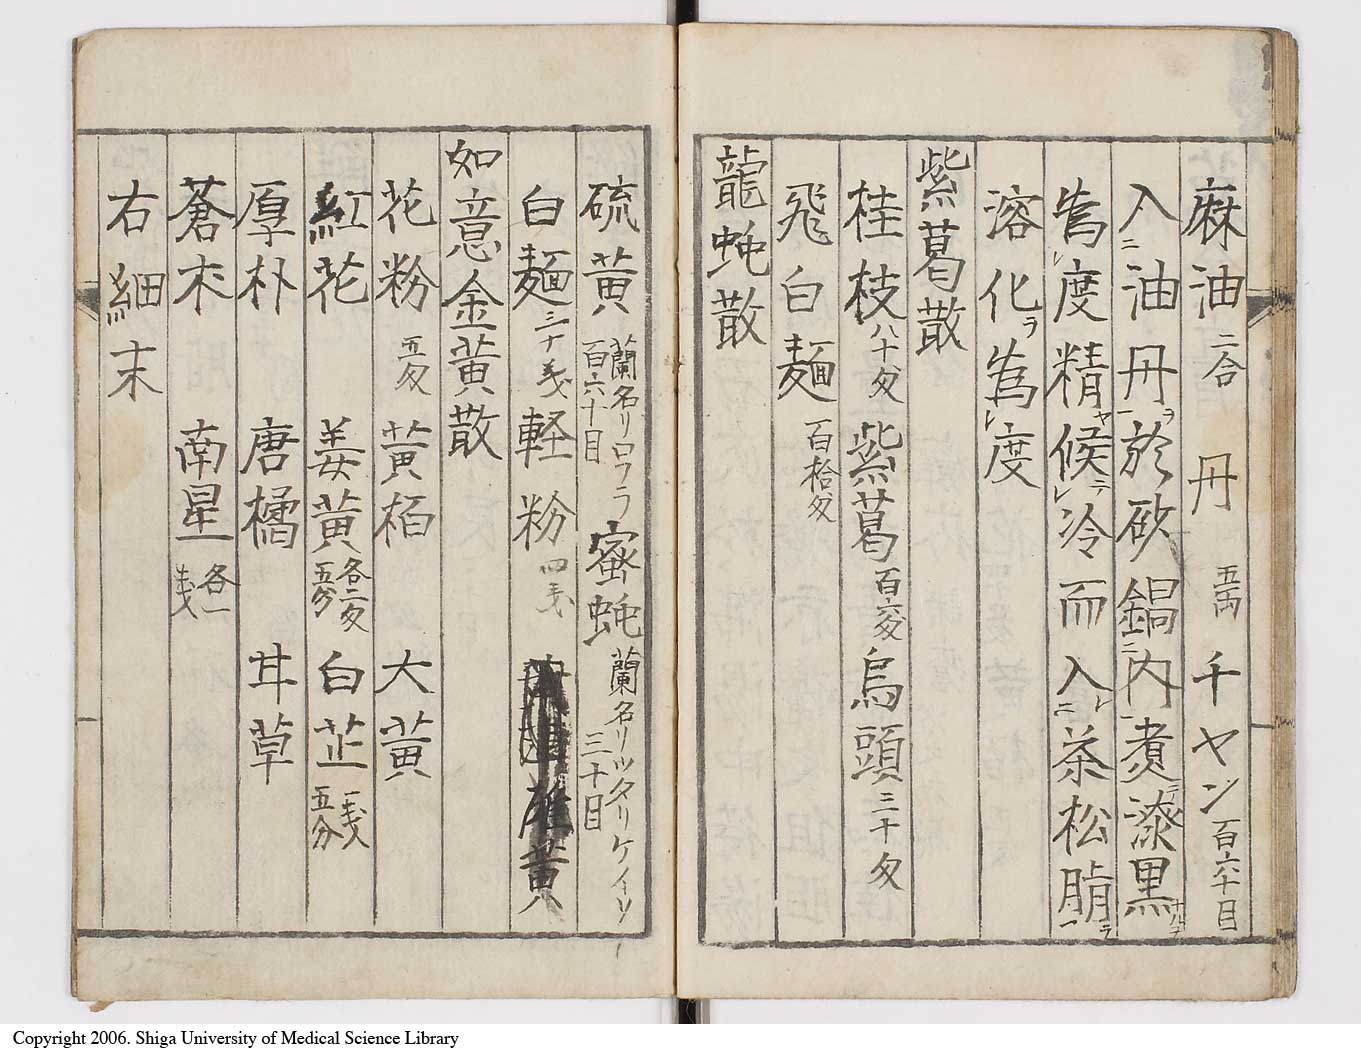 麻油 二合 丹 五両 チヤン 百六十目
入ニ油丹ヲ於砂鍋ニ内煮漆黒
為レ度精候テ冷而入レ茶松脂ヲ
溶化ヲ為レ度
紫葛散
桂枝 八十匁 紫葛 百六匁 烏頭 三十匁
飛白麺 百拾匁
龍蚫散
硫黄 蘭名リロフラ 百六十目 蜜蚫 蘭名リツタリケイソ 三十目
白麺 三十戔 軽粉 四戔 雄黄
如意金黄散
花粉 五匁 黄栢 大黄
紅花 姜黄 各二匁五分 白芷 一戔五分
厚朴 唐橘 甘草
蒼朮 南星 各一戔
右細末
Copyright 2006. Shiga University of Medical Science Library